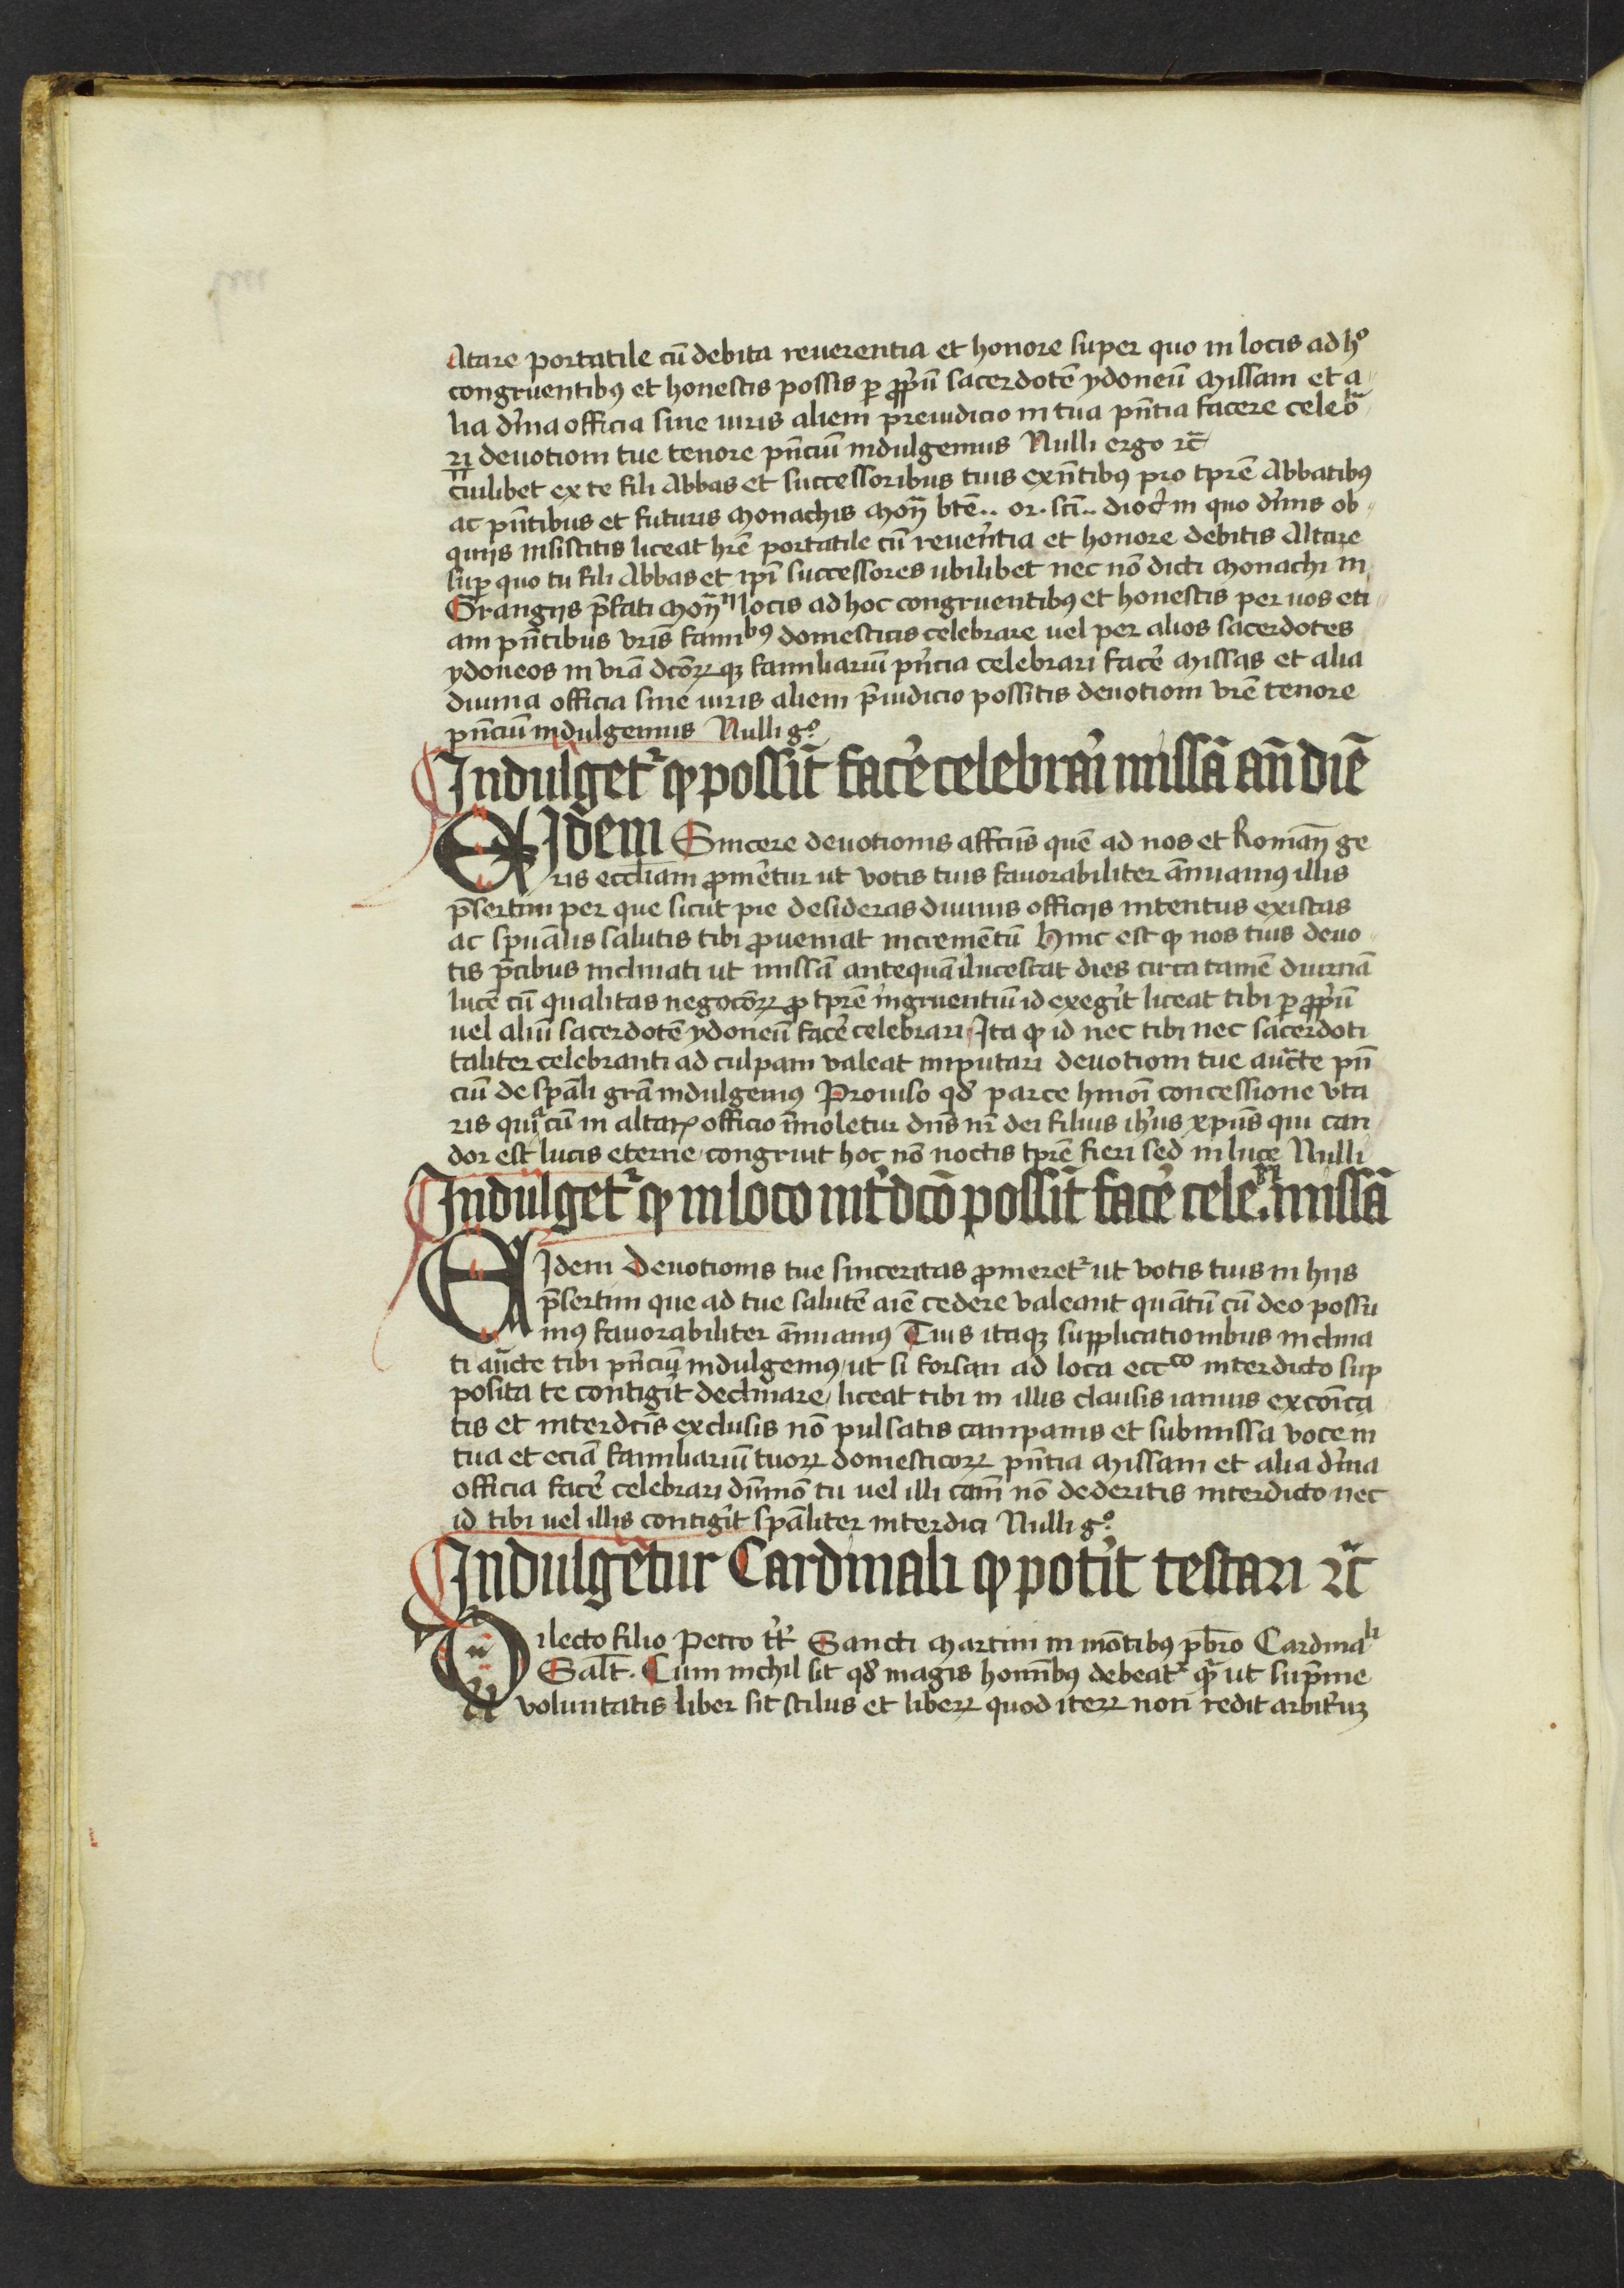 Altare portatile cū debita reuerentia et honore super quo in locis ad hº
congruentibꝰ et honestis possis ꝑ ꝓpriū sacerdotē ydoneū Missam et a
lia diuina officia sine iuris alieni preiudicio in tua pn̄tia facere celeb
ri deuotioni tue tenore pn̄ciū indulgemus Nulli ergo ⁊c̄
cuilibet ex te fili Abbas et successoribus tuis exn̄tibꝰ pro tp̄re Abbatibꝰ
ac pn̄tibus et futuris Monachis Moṉ bt̄e .. or. sc̄i .. dioc̄ in quo diuinis ob
quijs insistitis liceat hr̄e portatile cū reueren̄tia et honore debitis Altare
suꝑ quo tu fili Abbas et ip̄i successores ubilibet nec nō dicti Monachi in
Grangijs p̄fati Moṉ locis ad hoc congruentibꝰ et honestis per uos eti
am pn̄tibus vr̄is famibꝰ domesticis celebrare uel per alios sacerdotes
ydoneos in vr̄a dc̄oꝝqꝫ familiariū pn̄cia celebrari fac̄e Missas et alia
diuina officia sine iuris alieni p̄iudicio possitis deuotioni vr̄e tenore
pn̄ciū indulgemus Nulli gº
Indulget᷑ ꝙ possit fac̄e celebrari missā an̄ diē
Eidem Sincere deuotionis affc̄us quē ad nos et Romaṉ ge
ris eccl̄iam ꝓmer̄etur ut votis tuis fauorabiliter ānuamꝰ illis
p̄sertim per que sicut pie desideras diuinis officijs intentus existas
ac spūalis salutis tibi ꝓueniat incremētū Hinc est ꝙ nos tuis deuo
tis p̄cibus inclinati ut missā antequā illucescat dies circa tamē diurnā
lucē cū qualitas negocōꝝ ꝓ tp̄re ingruentiū id exegit liceat tibi ꝑ ꝓpriū
uel aliū sacerdotē ydoneū fac̄e celebrari Ita ꝙ id nec tibi nec sacerdoti
taliter celebranti ad culpam valeat imputari deuotioni tue auc̄te pn̄
ciū de sp̄ali gr̄a indulgemꝰ Prouiso qd̄ parce hmōi concessione vta
ris quia cū in altaꝝ officio īmoletur dn̄s nr̄ dei filius ih̄us xp̄us qui can
dor est lucis eterne congruit hoc nō noctis tp̄re fieri sed in luce Nulli
Indulget᷑ ꝙ in loco int̄dc̄o possit fac̄e celebri. missā
Eidem Deuotionis tue sinceritas ꝓmeret᷑ ut votis tuis in hijs
p̄sertim que ad tue salutē aīe cedere valeant quātū cū deo possu
mꝰ fauorabiliter ānuamꝰ Tuis itaqꝫ supplicationibus inclina
ti auc̄te tibi pn̄ciū indulgemꝰ ut si forsan ad loca ecc̄co interdicto sup
posita te contigit declinare liceat tibi in illis clausis ianuis excōica
tis et interdc̄is exclusis nō pulsatis campanis et submissa voce in
tua et eciā familiariū tuoꝝ domesticoꝝ pn̄tia Missam et alia diuina
officia fac̄e celebrari dūmō tu uel illi cam̄ nō dederitis interdicto nec
id tibi uel illis contigit sp̄aliter interdici Nulli gº
Indulgetur Cardinali ꝙ potit testari ⁊c̄
Dilecto filio Petro tt̄ Sancti Martini in mōtibꝰ pb̄ro Cardinali
Salt̄. Cum nichil sit qd̄ magis hominibꝰ debeat᷑ q̄ ut sup̄me
voluntatis liber sit stilus et libeꝝ quod iteꝝ non redit arbitriuꝫ